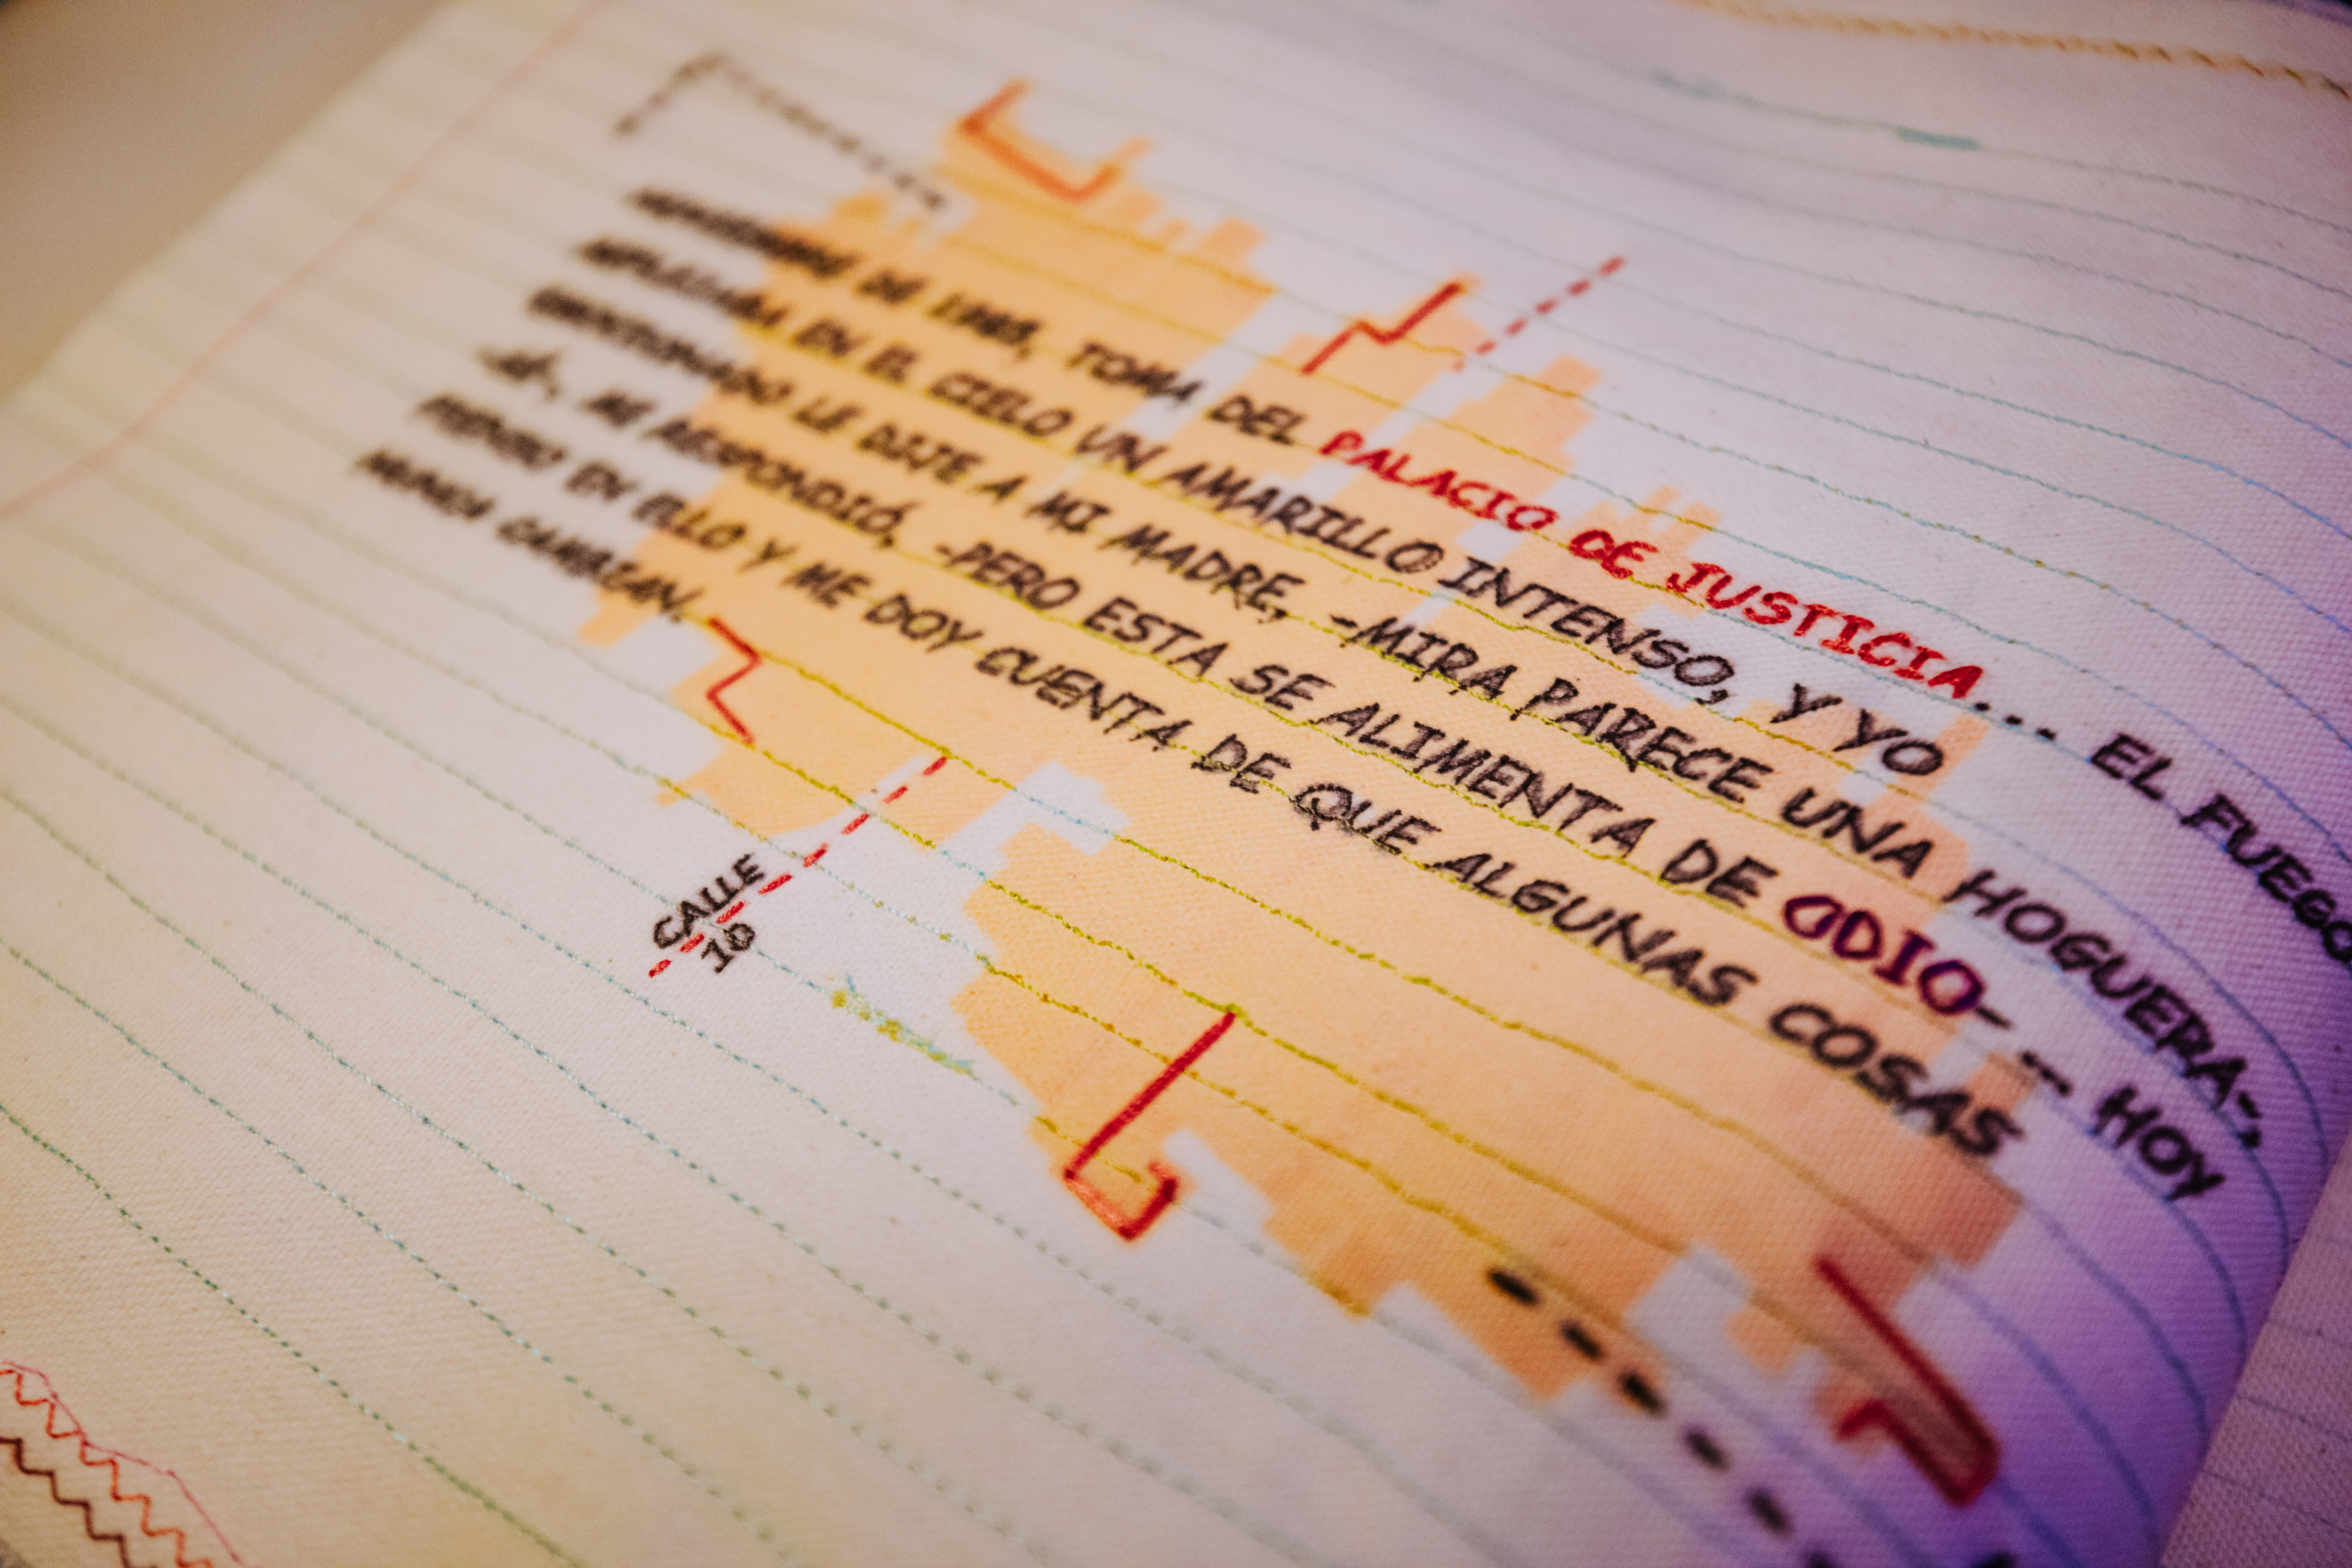 DE 1985, TOMA DEL PALACIO DE JUSTICIA... EL FUEGO
REFLEJABA EN EL CIELO UN AMARILLO INTENSO, Y YO
LE DIJE A MI MADRE, -MIRA PARECE UNA HOGUERA-,
-SÍ-, ME RESPONDIÓ, -PERO ESTA SE ALIMENTA DE ODIO- ... HOY
PIENSO EN ELLO Y ME DOY CUENTA DE QUE ALGUNAS COSAS
NUNCA CAMBIAN.
CALLE
10